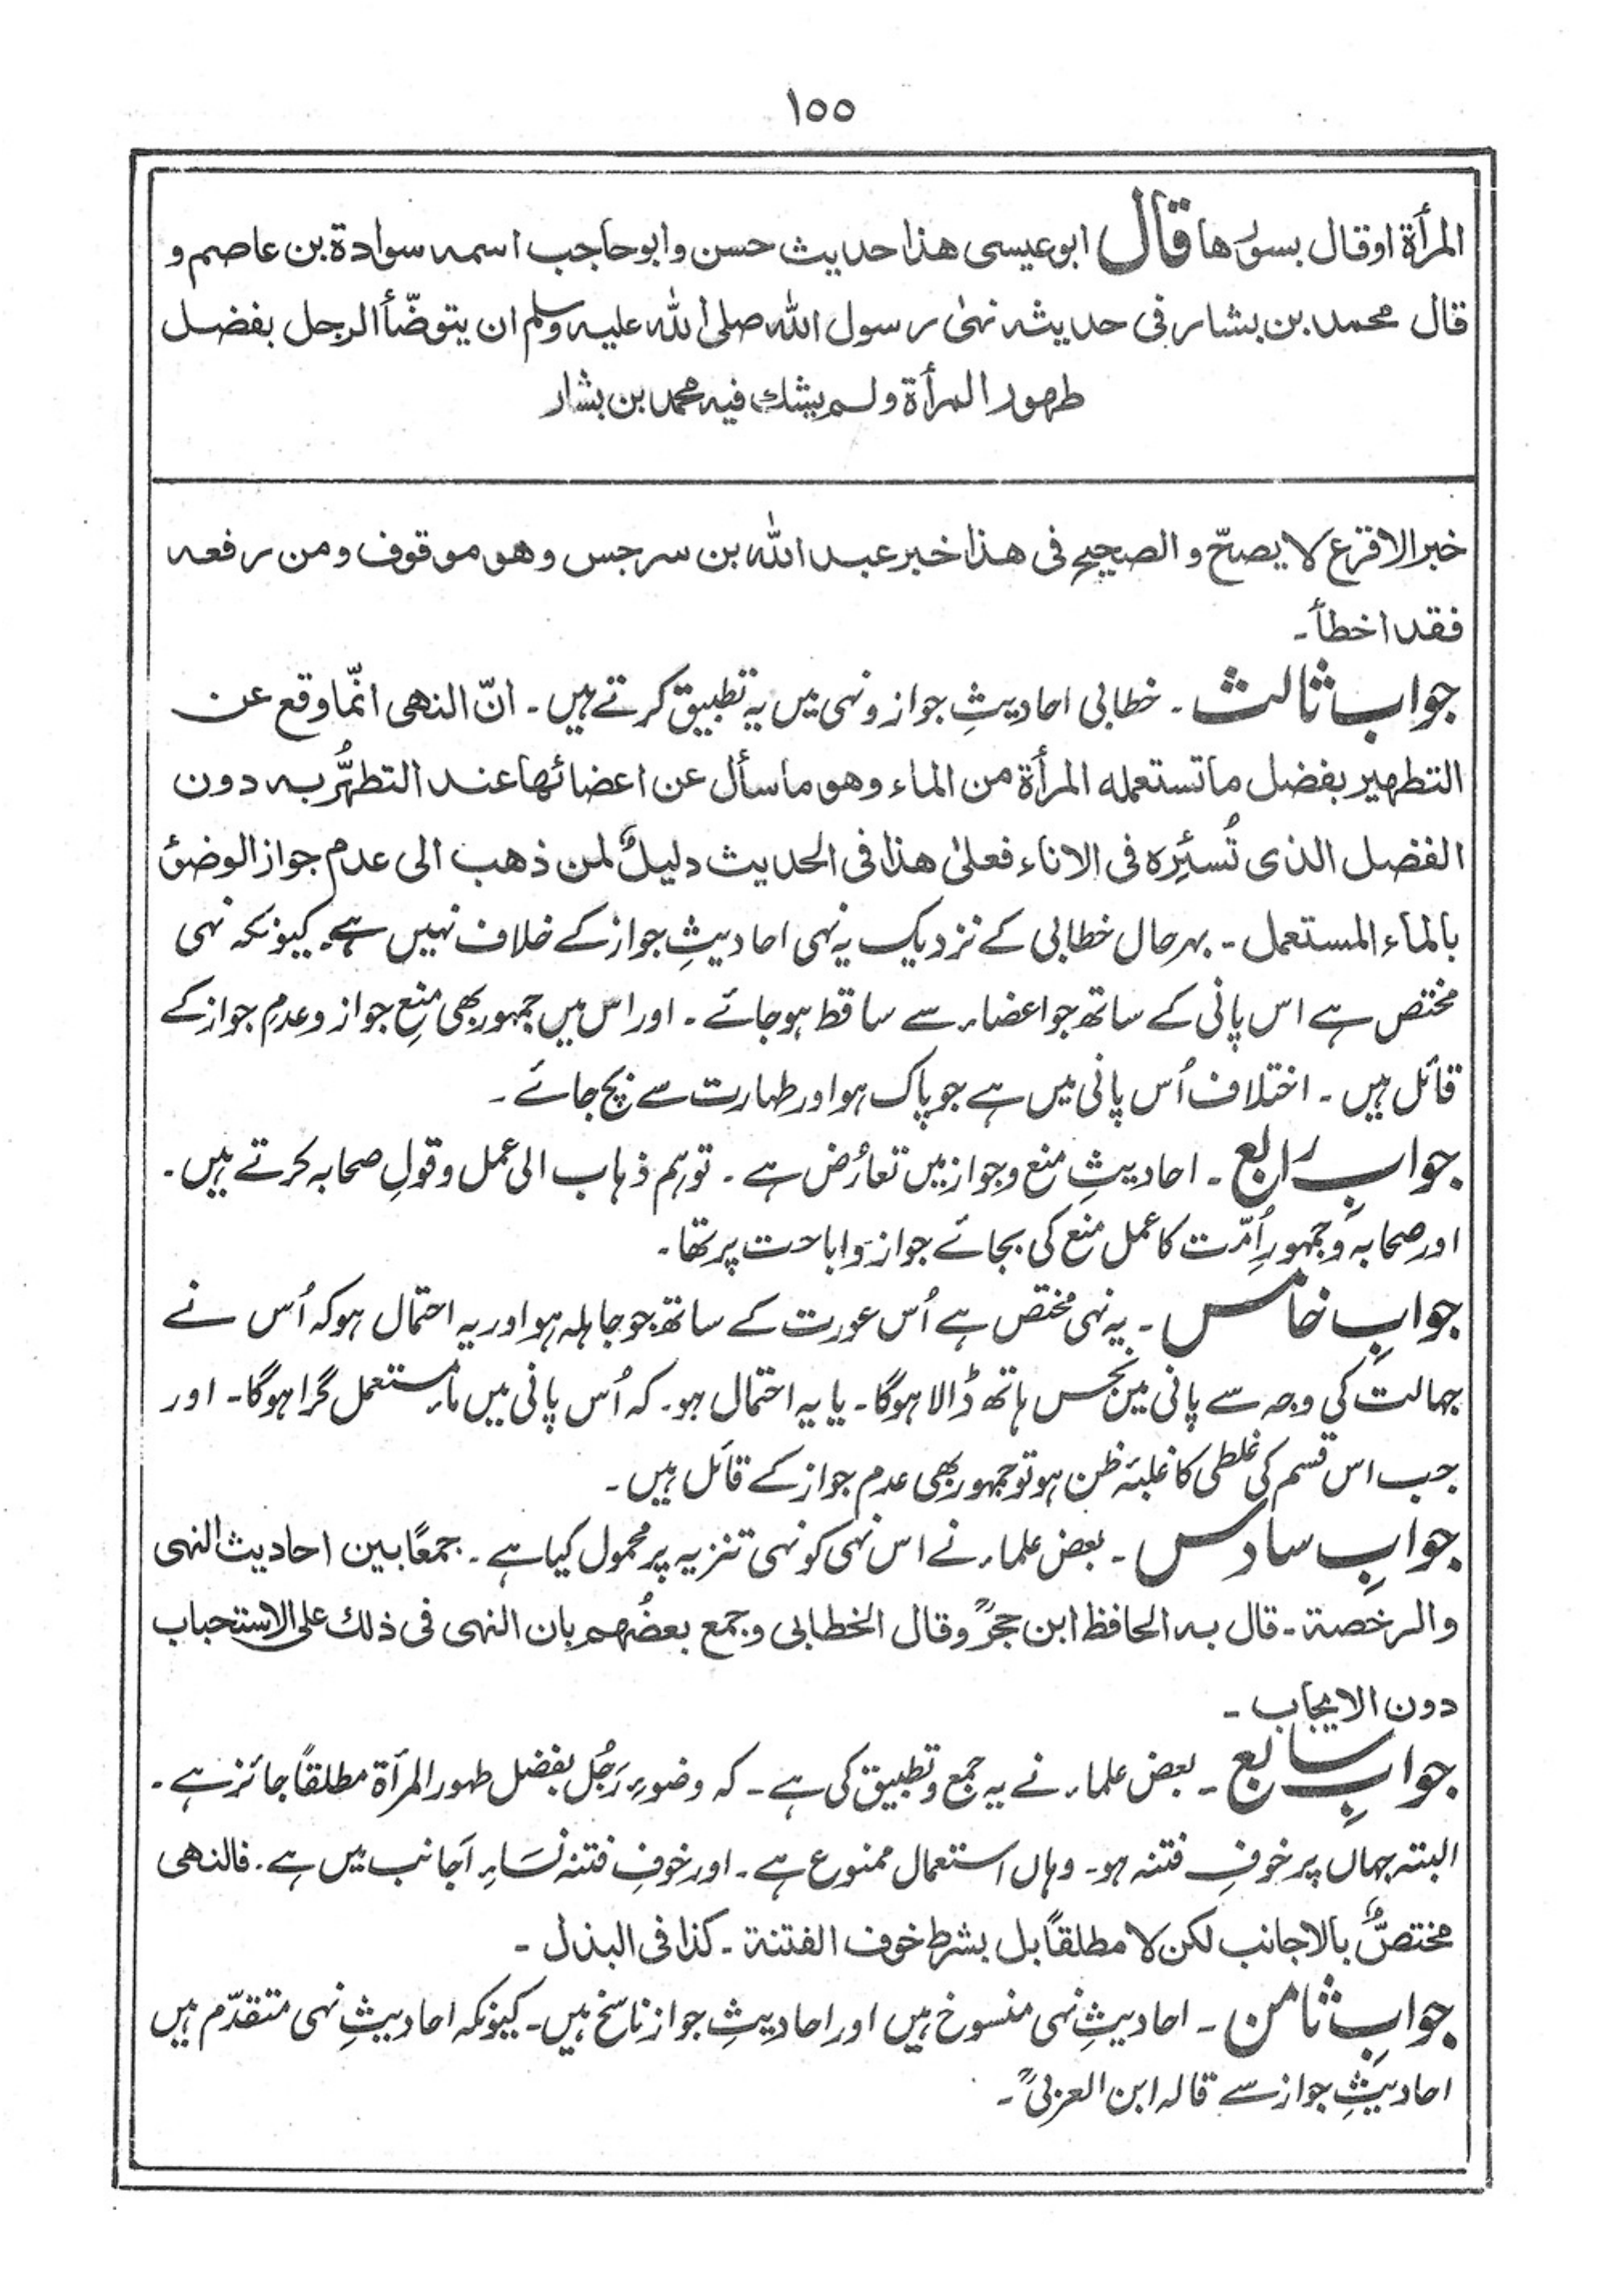 ۱۵۵
المرأة او قال بسؤرها قال ابوعیسی هذا حدیث حسن وابوحاجب اسمہ سوادة بن عاصم و
قال محمد بن بشار فی حدیثہ نہیٰ رسول اللہ صلی اللہ علیہ وسلم ان یتوضّأ الرجل بفضل
طہور المرأة ولم یشک فیہ محمد بن بشار
خبر الاقرع لا یصحّ و الصحیح فی هذا خبر عبد اللہ بن سرجس وهو موقوف ومن رفعہ
فقد اخطأ۔
جوابِ ثالث۔ خطابی احادیثِ جواز ونہی میں یہ تطبیق کرتے ہیں۔ انّ النهی انّما وقع عن
التطهیر بفضل ما تستعمله المرأة من الماء وهو ما سأل عن اعضائها عند التطہُّر بہ دون
الفضل الذی تُسئِرہ فی الاناء فعلیٰ هذا فی الحدیث دلیلٌ لمن ذهب الی عدم جواز الوضئ
بالماء المستعمل۔ بہرحال خطابی کے نزدیک یہ نہی احادیثِ جواز کے خلاف نہیں ہے۔ کیونکہ نہی
مختص ہے اس پانی کے ساتھ جو اعضاء سے ساقط ہوجائے۔ اور اس میں جمہور بھی منعِ جواز و عدمِ جواز کے
قائل ہیں۔ اختلاف اُس پانی میں ہے جو پاک ہو اور طہارت سے بچ جائے۔
جوابِ رابع۔ احادیثِ منع وجواز میں تعارُض ہے۔ تو ہم ذہاب الی عمل وقولِ صحابہ کرتے ہیں۔
اور صحابہ و جمہورِ اُمّت کا عمل منع کی بجائے جواز و اباحت پر تھا۔
جوابِ خامس۔ یہ نہی مختص ہے اُس عورت کے ساتھ جو جاہلہ ہو اور یہ احتمال ہو کہ اُس نے
جہالت کی وجہ سے پانی میں نجس ہاتھ ڈالا ہوگا۔ یا یہ احتمال ہو۔ کہ اُس پانی میں ماءِ مستعمل گرا ہوگا۔ اور
جب اس قسم کی غلطی کا غلبۂ ظن ہو تو جمہور بھی عدم جواز کے قائل ہیں۔
جوابِ سادس۔ بعض علماء نے اس نہی کو نہی تنزیہ پر محمول کیا ہے۔ جمعًا بین احادیث النهی
والرخصة۔ قال بہ الحافظ ابن حجرؒ وقال الخطابی وجمع بعضُهم بان النهی فی ذلك علی الاستحباب
دون الایجاب۔
جوابِ سابع۔ بعض علماء نے یہ جمع وتطبیق کی ہے۔ کہ وضوءِ رَجُل بفضل طہور المرأة مطلقاً جائز ہے۔
البتہ جہاں پر خوفِ فتنہ ہو۔ وہاں استعمال ممنوع ہے۔ اور خوفِ فتنہ نِسَاءِ اَجانب میں ہے۔ فالنهی
مختصٌّ بالاجانب لکن لا مطلقاً بل بشرط خوف الفتنة۔ کذا فی البذل۔
جوابِ ثامن۔ احادیثِ نہی منسوخ ہیں اور احادیثِ جواز ناسخ ہیں۔ کیونکہ احادیثِ نہی متقدّم ہیں
احادیثِ جواز سے قالہ ابن العربیؒ۔